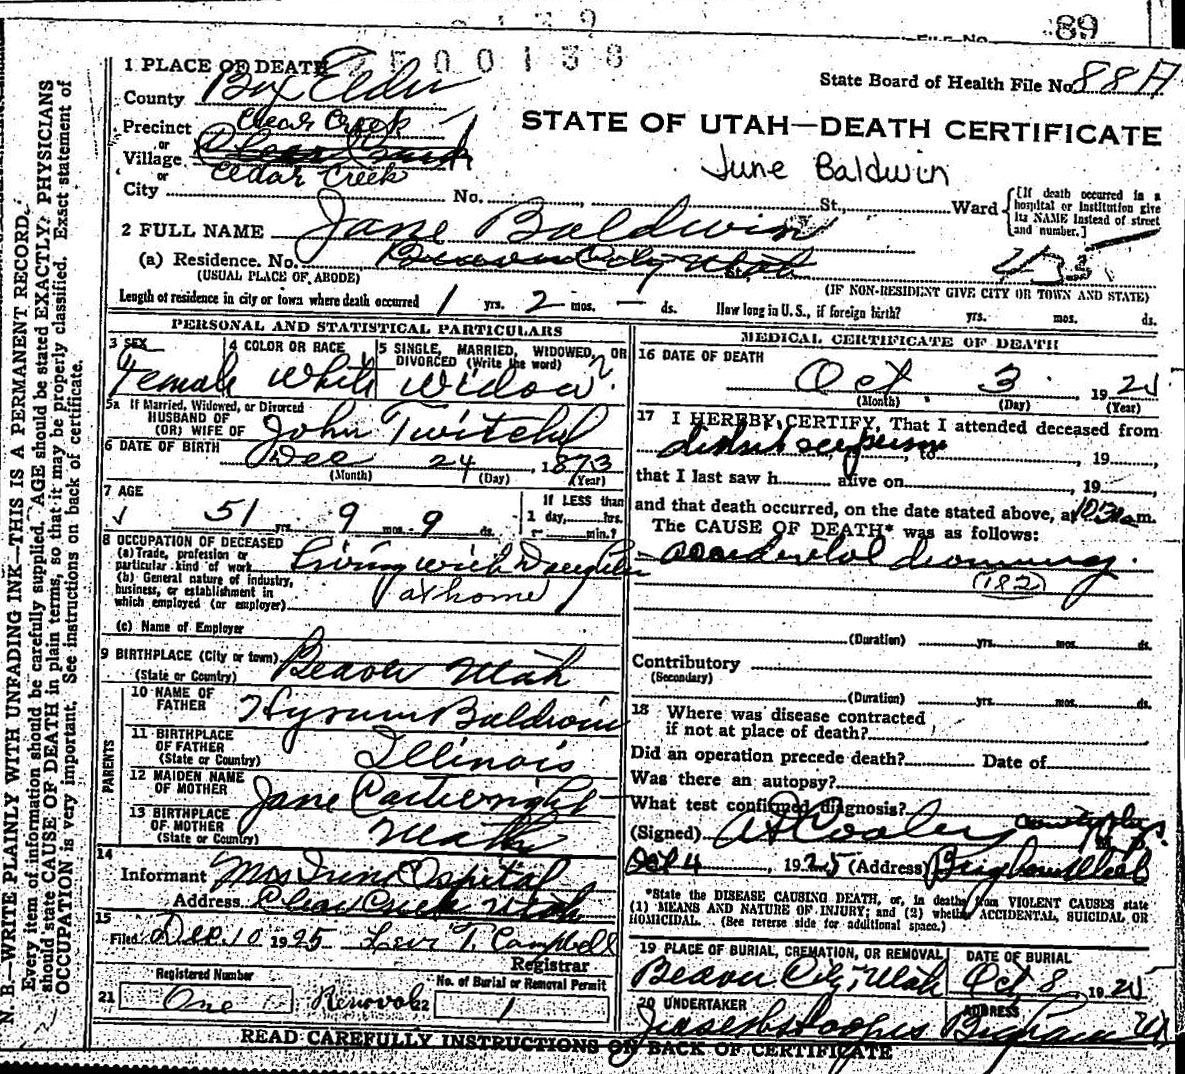 89
FILE No.
2500138
1 PLACE OF DEATH
State Board of Health File No. 88A
County Box Elder
STATE OF UTAH—DEATH CERTIFICATE
Precinct Clear Creek
or
Village Clear Creek
or
Cedar Creek
June Baldwin
City No. St. Ward
[If death occurred in a hospital or institution give its NAME instead of street and number.]
2 FULL NAME Jane Baldwin
(a) Residence. No. Beaver City, Utah St.
(USUAL PLACE OF ABODE)
(IF NON-RESIDENT GIVE CITY OR TOWN AND STATE)
Length of residence in city or town where death occurred 1 yrs. 2 mos. — ds. How long in U.S., if foreign birth? yrs. mos. ds.
PERSONAL AND STATISTICAL PARTICULARS
3 SEX
Female
4 COLOR OR RACE
White
5 SINGLE, MARRIED, WIDOWED, OR DIVORCED (Write the word)
Widow
5a If Married, Widowed, or Divorced
HUSBAND OF
(OR) WIFE OF John Twitchel
6 DATE OF BIRTH
Dec 24, 1873
(Month) (Day) (Year)
7 AGE
51 yrs. 9 mos. 9 ds.
If LESS than
1 day, hrs.
or min.?
8 OCCUPATION OF DECEASED
(a) Trade, profession or
particular kind of work Living with Daughter
(b) General nature of industry,
business, or establishment in
which employed (or employer) at home
(c) Name of Employer
9 BIRTHPLACE (City or town) Beaver Utah
(State or Country)
PARENTS
10 NAME OF
FATHER Hyrum Baldwin
11 BIRTHPLACE
OF FATHER
(State or Country) Illinois
12 MAIDEN NAME
OF MOTHER Jane Cartwright
13 BIRTHPLACE
OF MOTHER
(State or Country)
14
Informant Mrs
Address Clear Creek Utah
15
Filed Dec. 10 1925 Levi T. Campbell
Registrar
Registered Number
No. of Burial or Removal Permit
21 One Removal 22 1
MEDICAL CERTIFICATE OF DEATH
16 DATE OF DEATH
Oct 3 19 25
(Month) (Day) (Year)
17 I HEREBY CERTIFY, That I attended deceased from
, 19 , to , 19 ,
that I last saw h alive on , 19 ,
and that death occurred, on the date stated above, at 10 30 a m.
The CAUSE OF DEATH* was as follows:
accidental drowning
(182)
(Duration) yrs. mos. ds.
Contributory
(Secondary)
(Duration) yrs. mos. ds.
18 Where was disease contracted
if not at place of death?
Did an operation precede death? Date of
Was there an autopsy?
What test confirmed diagnosis?
(Signed) A Cooley
Oct 4, 1925 (Address) Brigham Utah
*State the DISEASE CAUSING DEATH, or, in deaths from VIOLENT CAUSES state
(1) MEANS AND NATURE OF INJURY; and (2) whether ACCIDENTAL, SUICIDAL, OR
HOMICIDAL. (See reverse side for additional space.)
19 PLACE OF BURIAL, CREMATION, OR REMOVAL
Beaver City, Utah
DATE OF BURIAL
Oct 8, 1925
20 UNDERTAKER
ADDRESS
Brigham Ut
READ CAREFULLY INSTRUCTIONS ON BACK OF CERTIFICATE
N. B.—WRITE PLAINLY WITH UNFADING INK—THIS IS A PERMANENT RECORD.
Every item of information should be carefully supplied. AGE should be stated EXACTLY. PHYSICIANS
should state CAUSE OF DEATH in plain terms, so that it may be properly classified. Exact statement of
OCCUPATION is very important. See instructions on back of certificate.